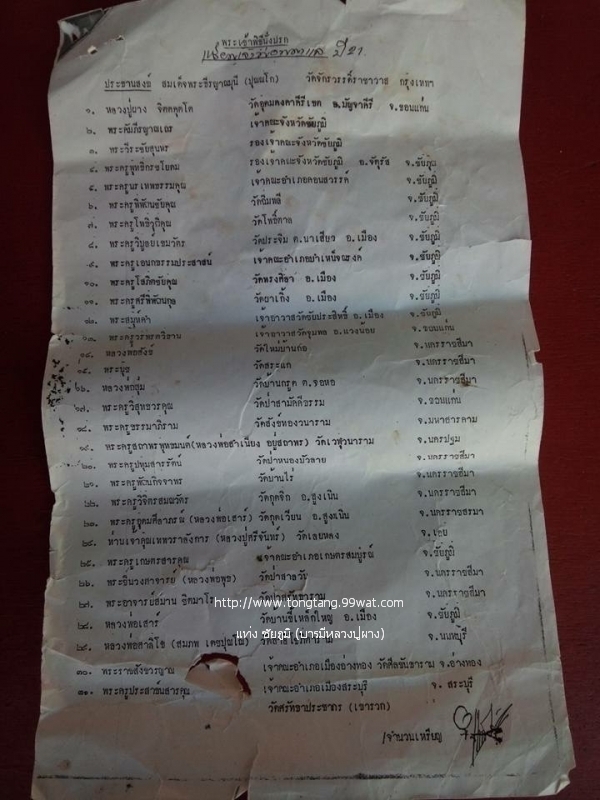 พระเจ้าพิธีนั่งปรก
ปี 21
ประธานสงฆ์ สมเด็จพระธีรญาณมุนี (ปุณณโก) วัดจักรวรรดิ์ราชาวาส กรุงเทพฯ
๑. หลวงปู่ผาง จิตตคุตโต วัดอุดมคงคาคีรีเขต อ.มัญจาคีรี จ.ขอนแก่น
๒. พระคัมภีรญาณเถร เจ้าคณะจังหวัดชัยภูมิ
๓. พระวีระชัยสุนทร รองเจ้าคณะจังหวัดชัยภูมิ
๔. พระครูพุทธิกรชโยดม รองเจ้าคณะจังหวัดชัยภูมิ อ.จัตุรัส จ.ชัยภูมิ
๕. พระครูนรเทพธรรมคุณ เจ้าคณะอำเภอคอนสวรรค์ จ.ชัยภูมิ
๖. พระครูพิพัฒนชัยคุณ วัดฉิมพลี จ.ชัยภูมิ
๗. พระครูโพธิวุฒิคุณ วัดโพธิ์ตาล จ.ชัยภูมิ
๘. พระครูวิบูลย์เขมวัตร วัดประจิม ต.นาเสียว อ.เมือง จ.ชัยภูมิ
๙. พระครูเอนกธรรมประสาสน์ เจ้าคณะอำเภอบำเหน็จณรงค์ จ.ชัยภูมิ
๑๐. พระครูโสภิตชัยคุณ วัดทรงศิลา อ.เมือง จ.ชัยภูมิ
๑๑. พระครูศรีพิพัฒนกุล วัดยาเกิ้ง อ.เมือง จ.ชัยภูมิ
๑๒. พระสมุห์คำ เจ้าอาวาสวัดชัยประสิทธิ์ อ.เมือง จ.ชัยภูมิ
๑๓. พระครูวรพรตวิธาน เจ้าอาวาสวัดจุมพล อ.แวงน้อย จ.ขอนแก่น
๑๔. หลวงพ่อสังข์ วัดใหม่บ้านก่อ จ.นครราชสีมา
๑๕. พระนุช วัดสระแก จ.นครราชสีมา
๑๖. หลวงพ่อสุ่ม วัดบ้านกรูด ต.จอหอ จ.นครราชสีมา
๑๗. พระครูวิสุทธวรคุณ วัดป่าสามัคคีธรรม จ.ขอนแก่น
๑๘. พระครูธรรมาภิราม วัดสังข์ทองวนาราม จ.มหาสารคาม
๑๙. พระครูสถาพรพุทธมนต์ (หลวงพ่อสำเนียง อยู่สถาพร) วัดเวฬุวนาราม จ.นครปฐม
๒๐. พระครูปทุมสารรัตน์ วัดป่าหนองบัวลาย จ.นครราชสีมา
๒๑. พระครูพัฒนกิจจาทร วัดบ้านไร่ จ.นครราชสีมา
๒๒. พระครูวิจิตรสมณวัตร วัดกุดจิก อ.สูงเนิน จ.นครราชสีมา
๒๓. พระครูอุดมศีลาภรณ์ (หลวงพ่อเสาร์) วัดกุดเวียน อ.สูงเนิน จ.นครราชสีมา
๒๔. ท่านเจ้าคุณเทพวราลังการ (หลวงปู่ศรีจันทร์) วัดเลยหลง จ.เลย
๒๕. พระครูเกษตรสารคุณ เจ้าคณะอำเภอเกษตรสมบูรณ์ จ.ชัยภูมิ
๒๖. พระชินวงศาจารย์ (หลวงพ่อพุธ) วัดป่าสาลวัน จ.นครราชสีมา
๒๗. พระอาจารย์สมาน จิตมาโร จ.นครราชสีมา
http://www.tongtang.99wat.com
๒๘. หลวงพ่อเสาร์ วัดบ้านขี้เหล็กใหญ่ อ.เมือง จ.ชัยภูมิ
แท่ง ชัยภูมิ (บารมีหลวงปู่ผาง)
๒๙. หลวงพ่อสาลีโข (สมภพ เตชปุญโญ) จ.นนทบุรี
๓๐. พระราชสังวรญาณ เจ้าคณะอำเภอเมืองอ่างทอง วัดศีลขันธาราม จ.อ่างทอง
๓๑. พระครูประสาธน์สารคุณ เจ้าคณะอำเภอเมืองสระบุรี จ. สระบุรี
วัดศรัทธาประชากร (เขารวก)
/จำนวนเหรียญ